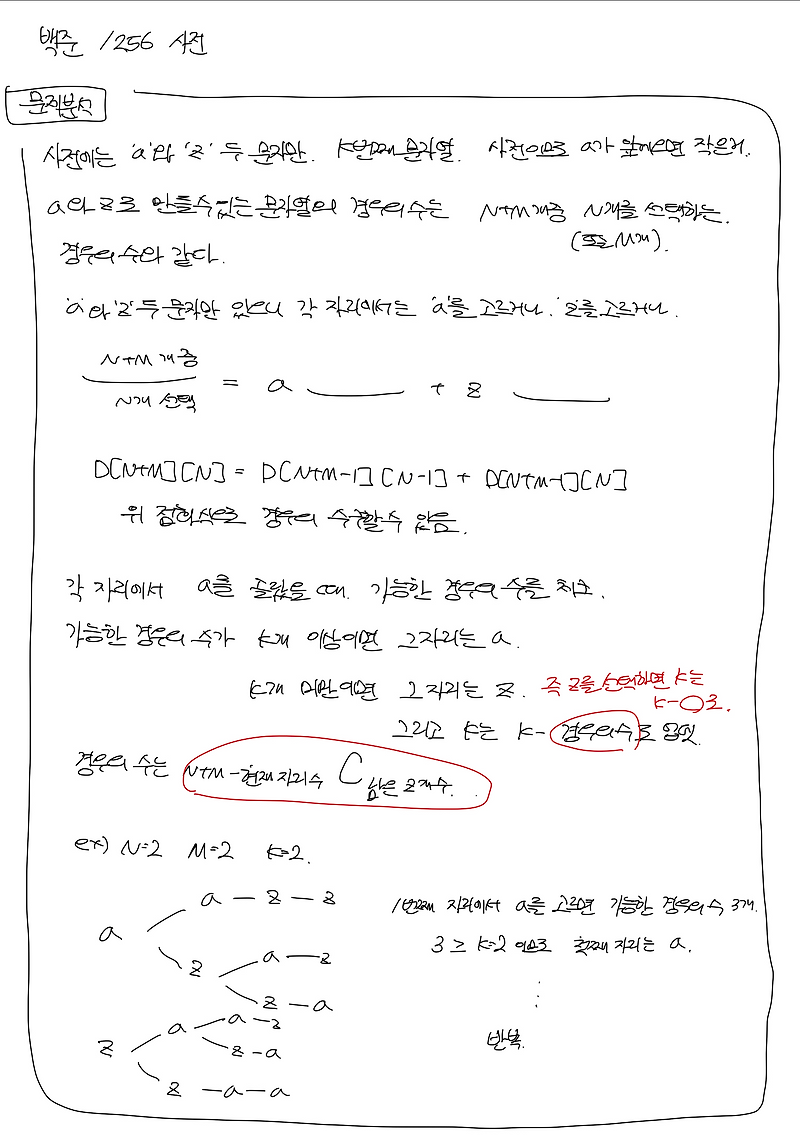 백준 1256 사전
문제분석
사전에는 'a'와 'z' 두 문자만. K번째 문자열. 사전순으로 a가 앞에오면 작은거.
a와 z로 만들수있는 문자열의 경우의수는 N+M개중 N개를 선택하는.
(또는 M개).
경우의 수와 같다.
'a'와 'z' 두 문자만 있으니 각 자리에서는 'a'를 고르거나. 'z'를 고르거나.
N+M개 중
N개 선택
= a + z
D[N+M][N] = D[N+M-1][N-1] + D[N+M-1][N]
위 점화식으로 경우의 수구할수 있음.
각 자리에서 a를 골랐을 때. 가능한 경우의 수를 체크.
가능한 경우의 수가 K개 이상이면 그자리는 a.
K개 미만이면 그 자리는 z. 즉 z를 선택하면 K는
K-○로.
그리고 K는 K-경우의수로
경우의 수는 N+M-현재자리수 C 남은 z개수.
ex) N=2 M=2 K=2.
a — z — z
a
a — z
z
z — a
1번째 자리에서 a를 고르면 가능한 경우의 수 3개.
3 ≥ K=2 이므로 첫째 자리는 a.
a
a — z
z — a
z
z — a — a
반복.